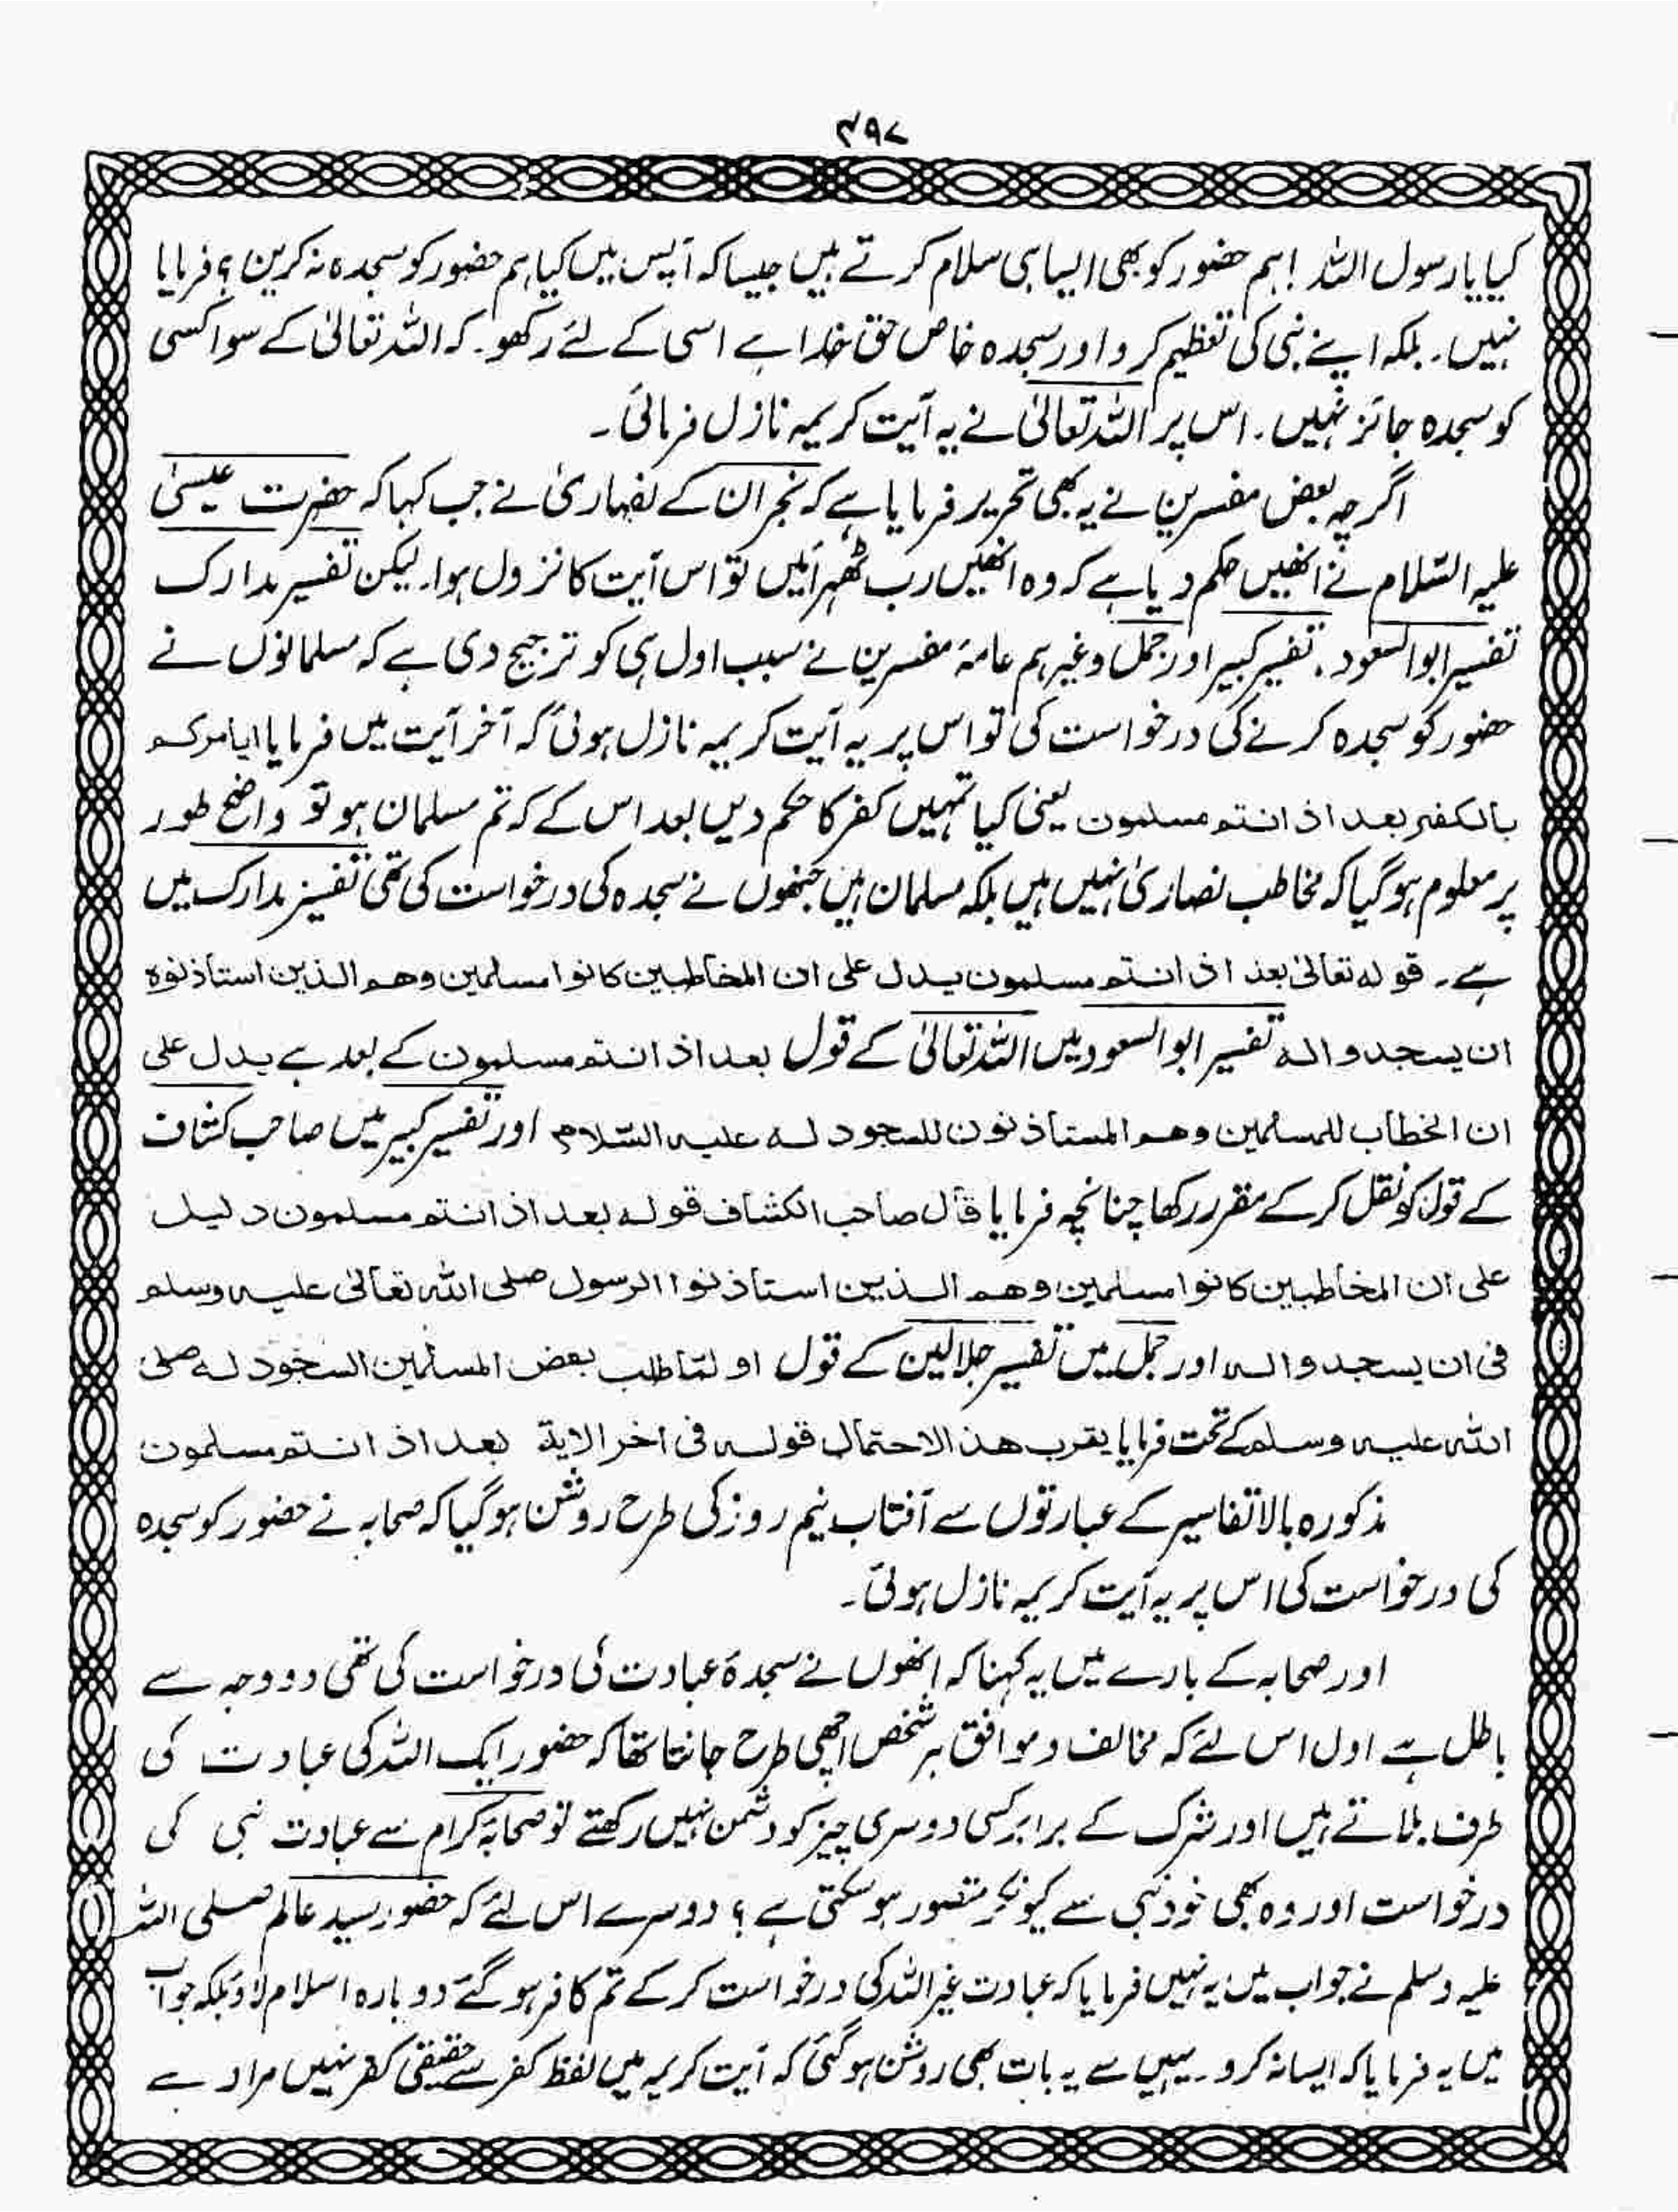 ۴۹۷
کیا یا رسول اللہ! ہم حضور کو بھی ایسا ہی سلام کرتے ہیں جیسا کہ آپس میں کیا ہم حضور کو سجدہ نہ کریں؟ فرمایا
نہیں۔ بلکہ اپنے نبی کی تعظیم کرو اور سجدہ خاص حق خدا ہے اسی کے لئے رکھو۔ کہ اللہ تعالیٰ کے سوا کسی
کو سجدہ جائز نہیں۔ اس پر اللہ تعالیٰ نے یہ آیت کریمہ نازل فرمائی۔
اگرچہ بعض مفسرین نے یہ بھی تحریر فرمایا ہے کہ نجران کے نصاریٰ نے جب کہا کہ حضرت عیسیٰ
علیہ السّلام نے انھیں حکم دیا ہے کہ وہ انھیں رب ٹھہرائیں تو اس آیت کا نزول ہوا۔ لیکن تفسیر مدارک
تفسیر ابو السعود۔ تفسیر کبیر اور جمل وغیرہم عامۂ مفسرین نے سبب اول ہی کو ترجیح دی ہے کہ مسلمانوں نے
حضور کو سجدہ کرنے کی درخواست کی تو اس پر یہ آیت کریمہ نازل ہوئی کہ آخر آیت میں فرمایا ایامرکم
بالکفر بعد اذ انتم مسلمون یعنی کیا تمہیں کفر کا حکم دیں بعد اس کے کہ تم مسلمان ہو تو واضح طور
پر معلوم ہو گیا کہ مخاطب نصاریٰ نہیں ہیں بلکہ مسلمان ہیں جنھوں نے سجدہ کی درخواست کی تھی تفسیر مدارک میں
ہے۔ قوله تعالیٰ بعد اذ انتم مسلمون یدل علی ان المخاطبین کانوا مسلمین وهم الذین استاذنوه
ان یسجدوا له تفسیر ابو السعود میں اللہ تعالیٰ کے قول بعد اذ انتم مسلمون کے بعد ہے یدل علی
ان الخطاب للمسلمین وهم المستاذنون للسجود له علیه السّلام اور تفسیر کبیر میں صاحب کشاف
کے قول کو نقل کر کے مقرر رکھا چنانچہ فرمایا قال صاحب الکشاف قوله بعد اذ انتم مسلمون دلیل
علی ان المخاطبین کانوا مسلمین وهم الذین استاذنوا الرسول صلی الله تعالیٰ علیه وسلم
فی ان یسجدوا له اور جمل میں تفسیر جلالین کے قول او لمّا طلب بعض المسلمین السجود له صلی
الله علیه وسلم کے تحت فرمایا یقرب هذا الاحتمال قوله فی اخر الایة بعد اذ انتم مسلمون
مذکورہ بالا تفاسیر کے عبارتوں سے آفتاب نیم روز کی طرح روشن ہو گیا کہ صحابہ نے حضور کو سجدہ
کی درخواست کی اس پر یہ آیت کریمہ نازل ہوئی۔
اور صحابہ کے بارے میں یہ کہنا کہ انھوں نے سجدۂ عبادت کی درخواست کی تھی دو وجہ سے
باطل ہے اول اس لئے کہ مخالف و موافق ہر شخص اچھی طرح جانتا تھا کہ حضور ایک اللہ کی عبادت کی
طرف بلاتے ہیں اور شرک کے برابر کسی دوسری چیز کو دشمن نہیں رکھتے تو صحابۂ کرام سے عبادت نبی کی
درخواست اور وہ بھی خود نبی سے کیونکر متصور ہو سکتی ہے؟ دوسرے اس لئے کہ حضور سید عالم صلی اللہ
علیہ وسلم نے جواب میں یہ نہیں فرمایا کہ عبادت غیر اللہ کی درخواست کر کے تم کافر ہو گئے دوبارہ اسلام لاؤ بلکہ جواب
میں یہ فرمایا کہ ایسا نہ کرو۔ یہیں سے یہ بات بھی روشن ہو گئی کہ آیت کریمہ میں لفظ کفر سے حقیقی کفر نہیں مراد ہے